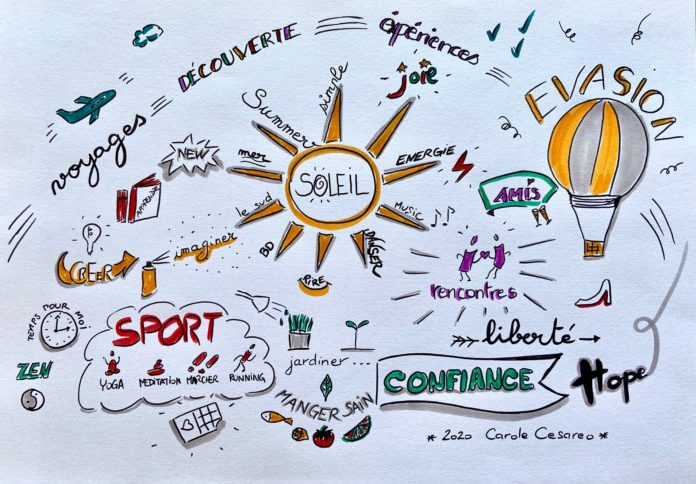 DÉCOUVERTE
expériences
joie
EVASION
voyages
Summer
simple
NEW
mer
ENERGIE
SOLEIL
AMIS
le sud
MUSIC
imaginer
BD
RIRE
DANSER
CRÉER
rencontres
TEMPS POUR MOI
SPORT
liberté
jardiner...
YOGA
MEDITATION
MARCHER
RUNNING
ZEN
CONFIANCE
Hope
MANGER SAIN
* 2020 Carole Cesareo *